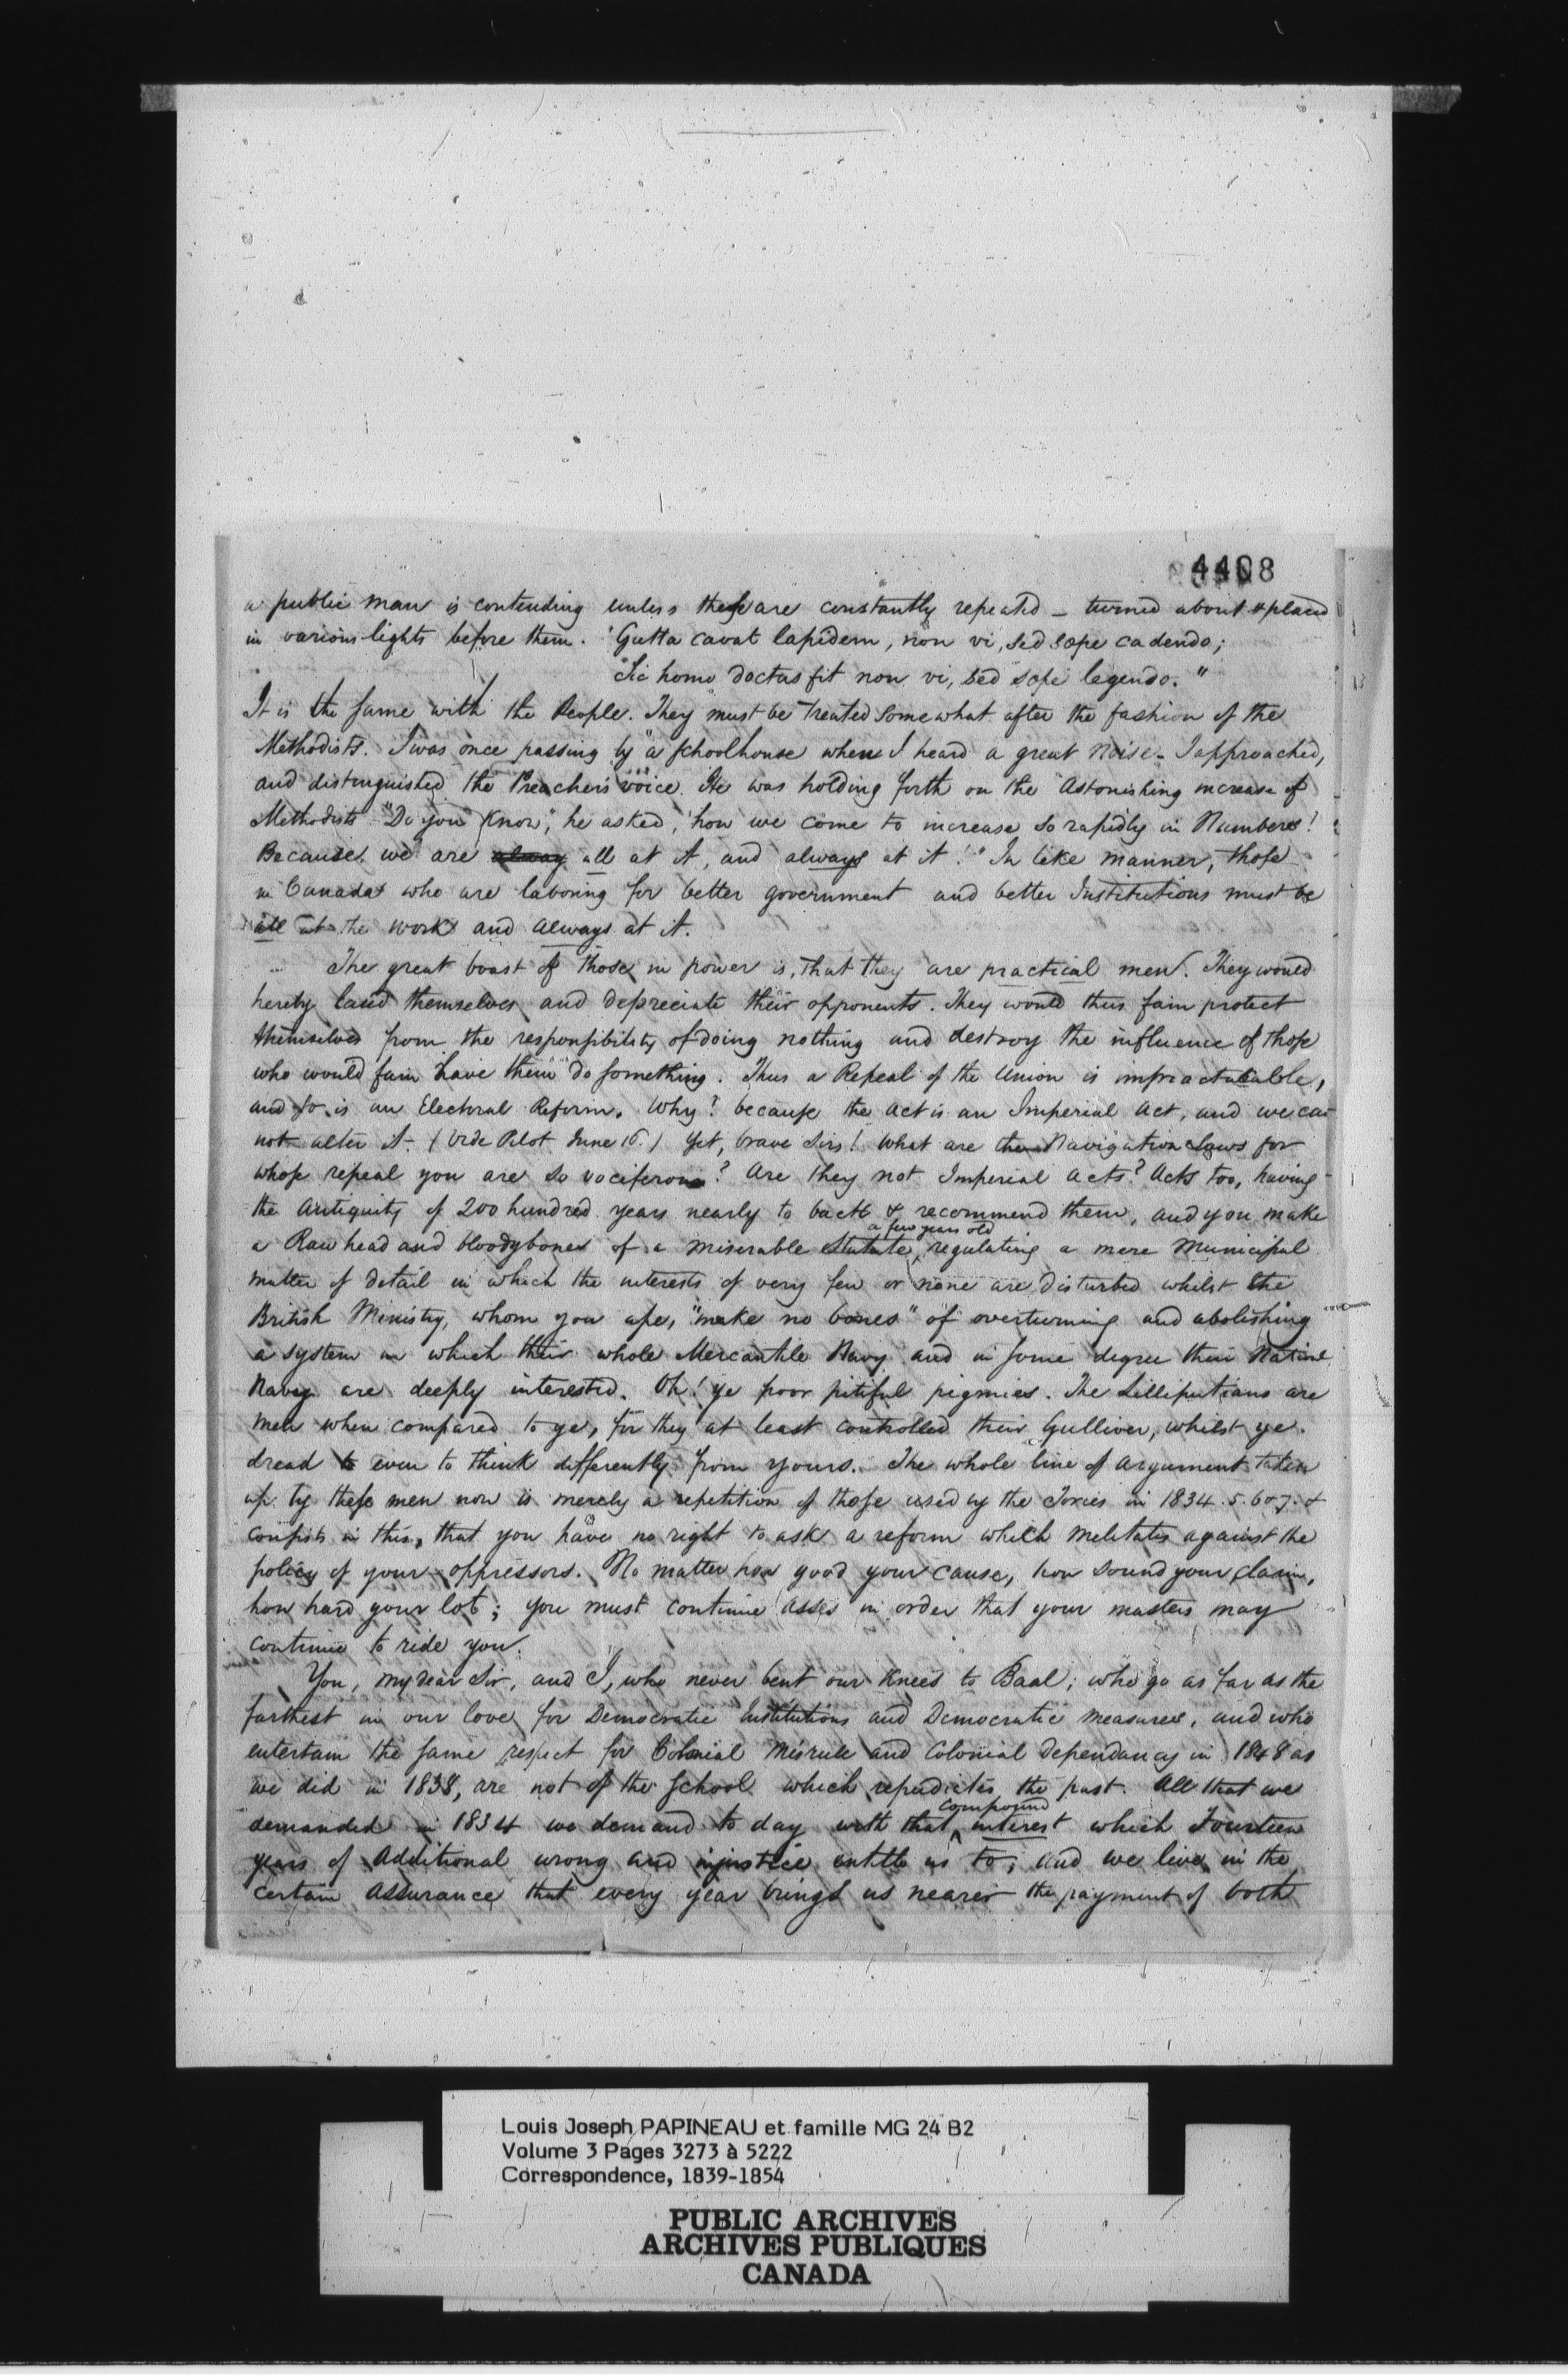 4408
a public man is contending unless these are constantly repeated – turned about & placed
in various lights before them. "Gutta cavat lapidem, non vi, sed sœpe cadendo;
"Sic homo doctus fit non vi, sed sœpe legendo."
It is the same with the People. They must be treated somewhat after the fashion of the
Methodists. I was once passing by a schoolhouse when I heard a great noise – I approached,
and distinguished the Preacher's voice. He was holding forth on the astonishing increase of
Methodists "Do you know," he asked, "how we come to increase so rapidly in Numbers?
Because we are alway all at it, and always at it!" In like manner, those
in Canada who are laboring for better government and better Institutions must be
all at the work and always at it.
The great boast of those in power is, that they are practical men. They would
hereby laud themselves and depreciate their opponents. They would thus fain protect
themselves from the responsibility of doing nothing and destroy the influence of those
who would fain have them do something. Thus a Repeal of the Union is impracticable,
and so is an Electoral Reform. Why? because the act is an Imperial Act, and we can
not alter it – (Vide Pilot June 16.) Yet, brave Sirs! What are the Navigation Laws for
whose repeal you are so vociferous? Are they not Imperial Acts? Acts too, having
the Antiquity of 200 hundred years nearly to back & recommend them, and you make
a few years old
a Raw head and bloodybones of a miserable Statute, regulating a mere Municipal
matter of detail in which the interests of very few or none are disturbed whilst the
British Ministry, whom you ape, "make no bones" of overturning and abolishing
a system in which their whole Mercantile Navy and in some degree their Native
Navy are deeply interested. Oh! ye poor pitiful pigmies. The Lilliputians are
men when compared to ye, for they at least controlled their Gulliver, whilst ye
dread to even to think differently from yours. The whole line of argument taken
up by these men now is merely a repetition of those used by the Tories in 1834.5.6 & 7. &
consists in this, that you have no right to ask a reform which melitates against the
policy of your oppressors. No matter how good your cause, how sound your claim,
how hard your lot; you must continue asses in order that your masters may
continue to ride you.
You, my dear Sir, and I, who never bent our Knees to Baal; who go as far as the
farthest in our love for Democratic Institutions and Democratic measures, and who
entertain the same respect for Colonial Misrule and Colonial dependancy in 1848 as
we did in 1838, are not of the School which repudiates the past. All that we
compound
demanded in 1834 we demand to day with that interest which Fourteen
years of Additional wrong and injustice entitle us to; and we live in the
certain assurance that every year brings us nearer the payment of both
Louis Joseph PAPINEAU et famille MG 24 B2
Volume 3 Pages 3273 à 5222
Correspondence, 1839-1854
PUBLIC ARCHIVES
ARCHIVES PUBLIQUES
CANADA